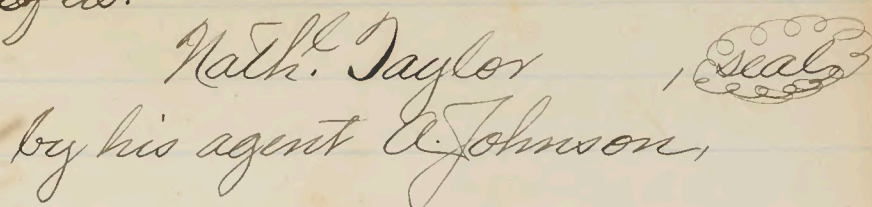 of us.
Nath.l Taylor , seal
by his agent A. Johnson,